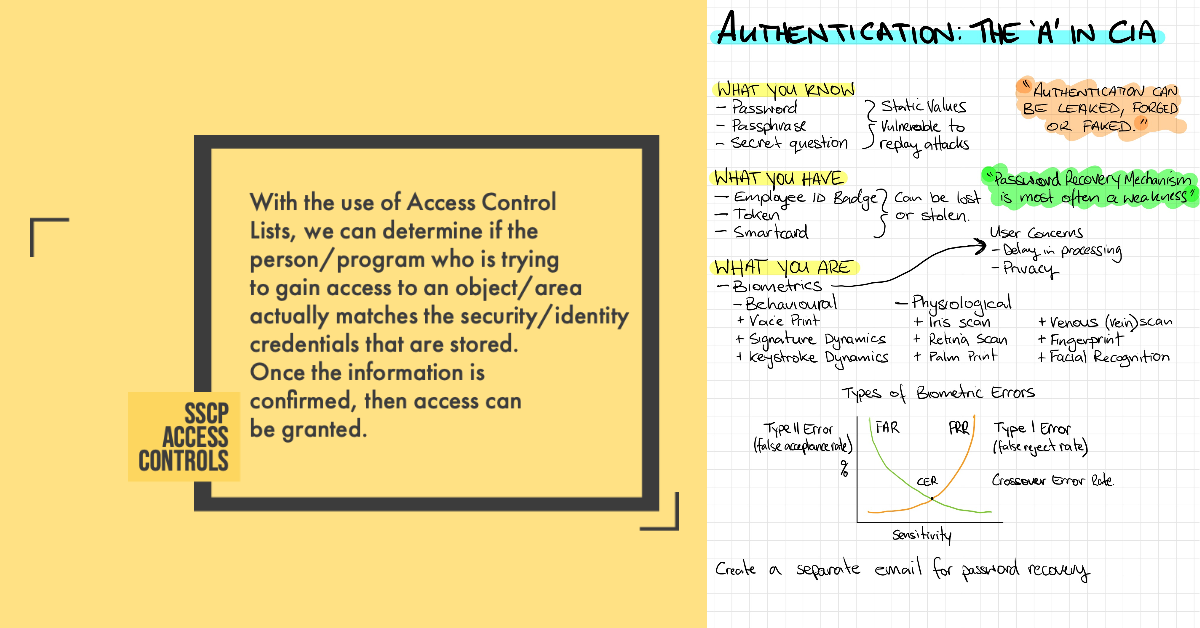 With the use of Access Control
Lists, we can determine if the
person/program who is trying
to gain access to an object/area
actually matches the security/identity
credentials that are stored.
Once the information is
confirmed, then access can
be granted.
SSCP
ACCESS
CONTROLS
AUTHENTICATION: THE 'A' IN CIA
WHAT YOU KNOW
- Password
- Passphrase
- Secret question
Static Values
Vulnerable to
replay attacks
"AUTHENTICATION CAN
BE LEAKED, FORGED
OR FAKED."
WHAT YOU HAVE
- Employee ID Badge
- Token
- Smartcard
Can be lost
or stolen.
"Password Recovery Mechanism
is most often a weakness"
User Concerns
- Delay in processing
- Privacy
WHAT YOU ARE
- Biometrics
- Behavioural
+ Voice Print
+ Signature Dynamics
+ Keystroke Dynamics
- Physiological
+ Iris scan
+ Retina Scan
+ Palm Print
+ Venous (vein) scan
+ Fingerprint
+ Facial Recognition
Types of Biometric Errors
Type II Error
(false acceptance rate)
%
FAR
FRR
CER
Type I Error
(false reject rate)
Crossover Error Rate.
Sensitivity
Create a separate email for password recovery